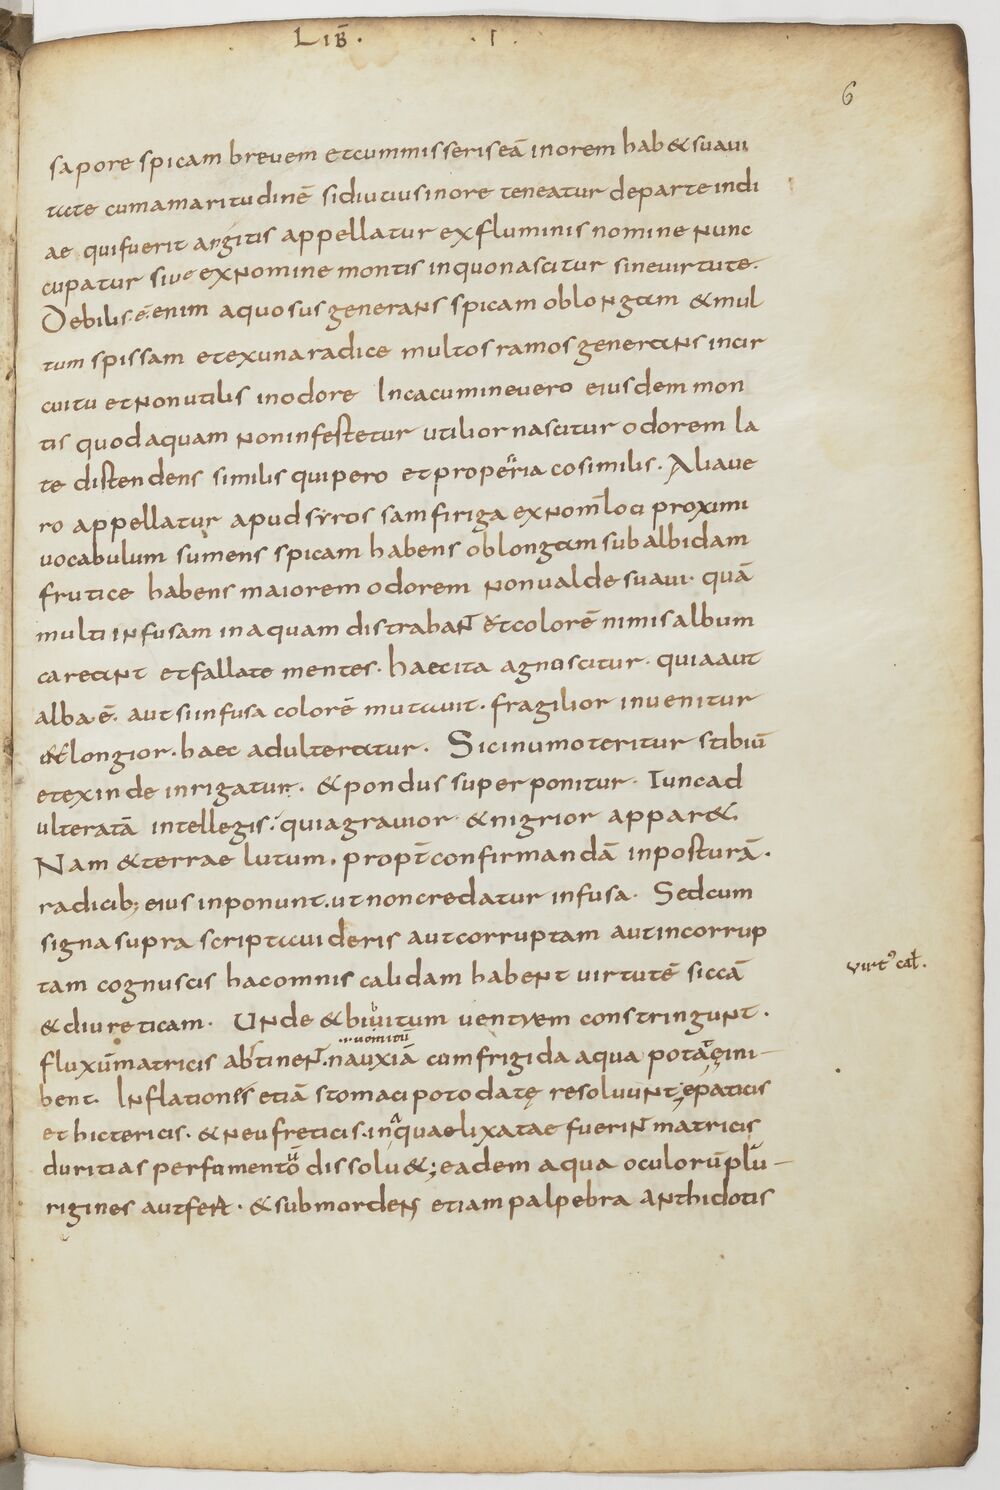 LIB̄ · · I ·
6
sapore spicam brevem et cum misseris eā in orem hab& suaui
tate cum amaritudinē si diutius in ore teneatur de parte indi
ae qui fuerit angitis appellatur ex fluminis nomine nunc
cupatur sive ex nomine montis in quo nascitur sine uirtute.
Debilis·ē·enim aquosus generans spicam oblongam & mul
tum spissam et ex una radice multos ramos generans in cir
cuitu et non utilis in odore In cacumine uero eiusdem mon
tis quod aquam non infestetur utilior nascitur odorem la
te distendens similis quipero et properia cosimilis. Alia ue
ro appellatur apud syros samfiriga ex nom̄ loci proximi
uocabulum sumens spicam habens oblongam subalbidam
frutice habens maiorem odorem non ualde suaui· quā
multi infusam in aquam distrabaN̄ et colorē nimis album
careant et fallate mentes. haec ita agnuscitur· quia aut
alba·ē· aut si infusa colorē mutauit· fragilior inuenitur
& longior· haec adulteratur. Sic in umo teritur stibiū
et exinde inrigatur. & pondus super ponitur· Tunc ad
ulteratā intellegis; quia grauior & nigrior appar&.
Nam & terrae lutum. propt̄ confirmandā inposturā.
radicib; eius inponunt. ut non credatur infusa· Sed cum
signa supra scripta uideris aut corruptam aut incorrup
tam cognuscis hac omnis calidam habent uirtutē siccā
& diureticam. Unde & bibitum uentrem constringunt.
virt᾿ cal̄.
vomitū
fluxū matricis abstineN̄. nauxiā cum frigida aqua potate ini-
bent. Inflationes etiā stomaci poto datę resoluunt; epaticis
et hictericis. & neufreticis. in aqua quae lixatae fueriN̄ matricis
duritias perfumentū dissolu&; eadem aqua oculorū plu-
rigines aut fert· & submordens etiam palpebra anthidotis